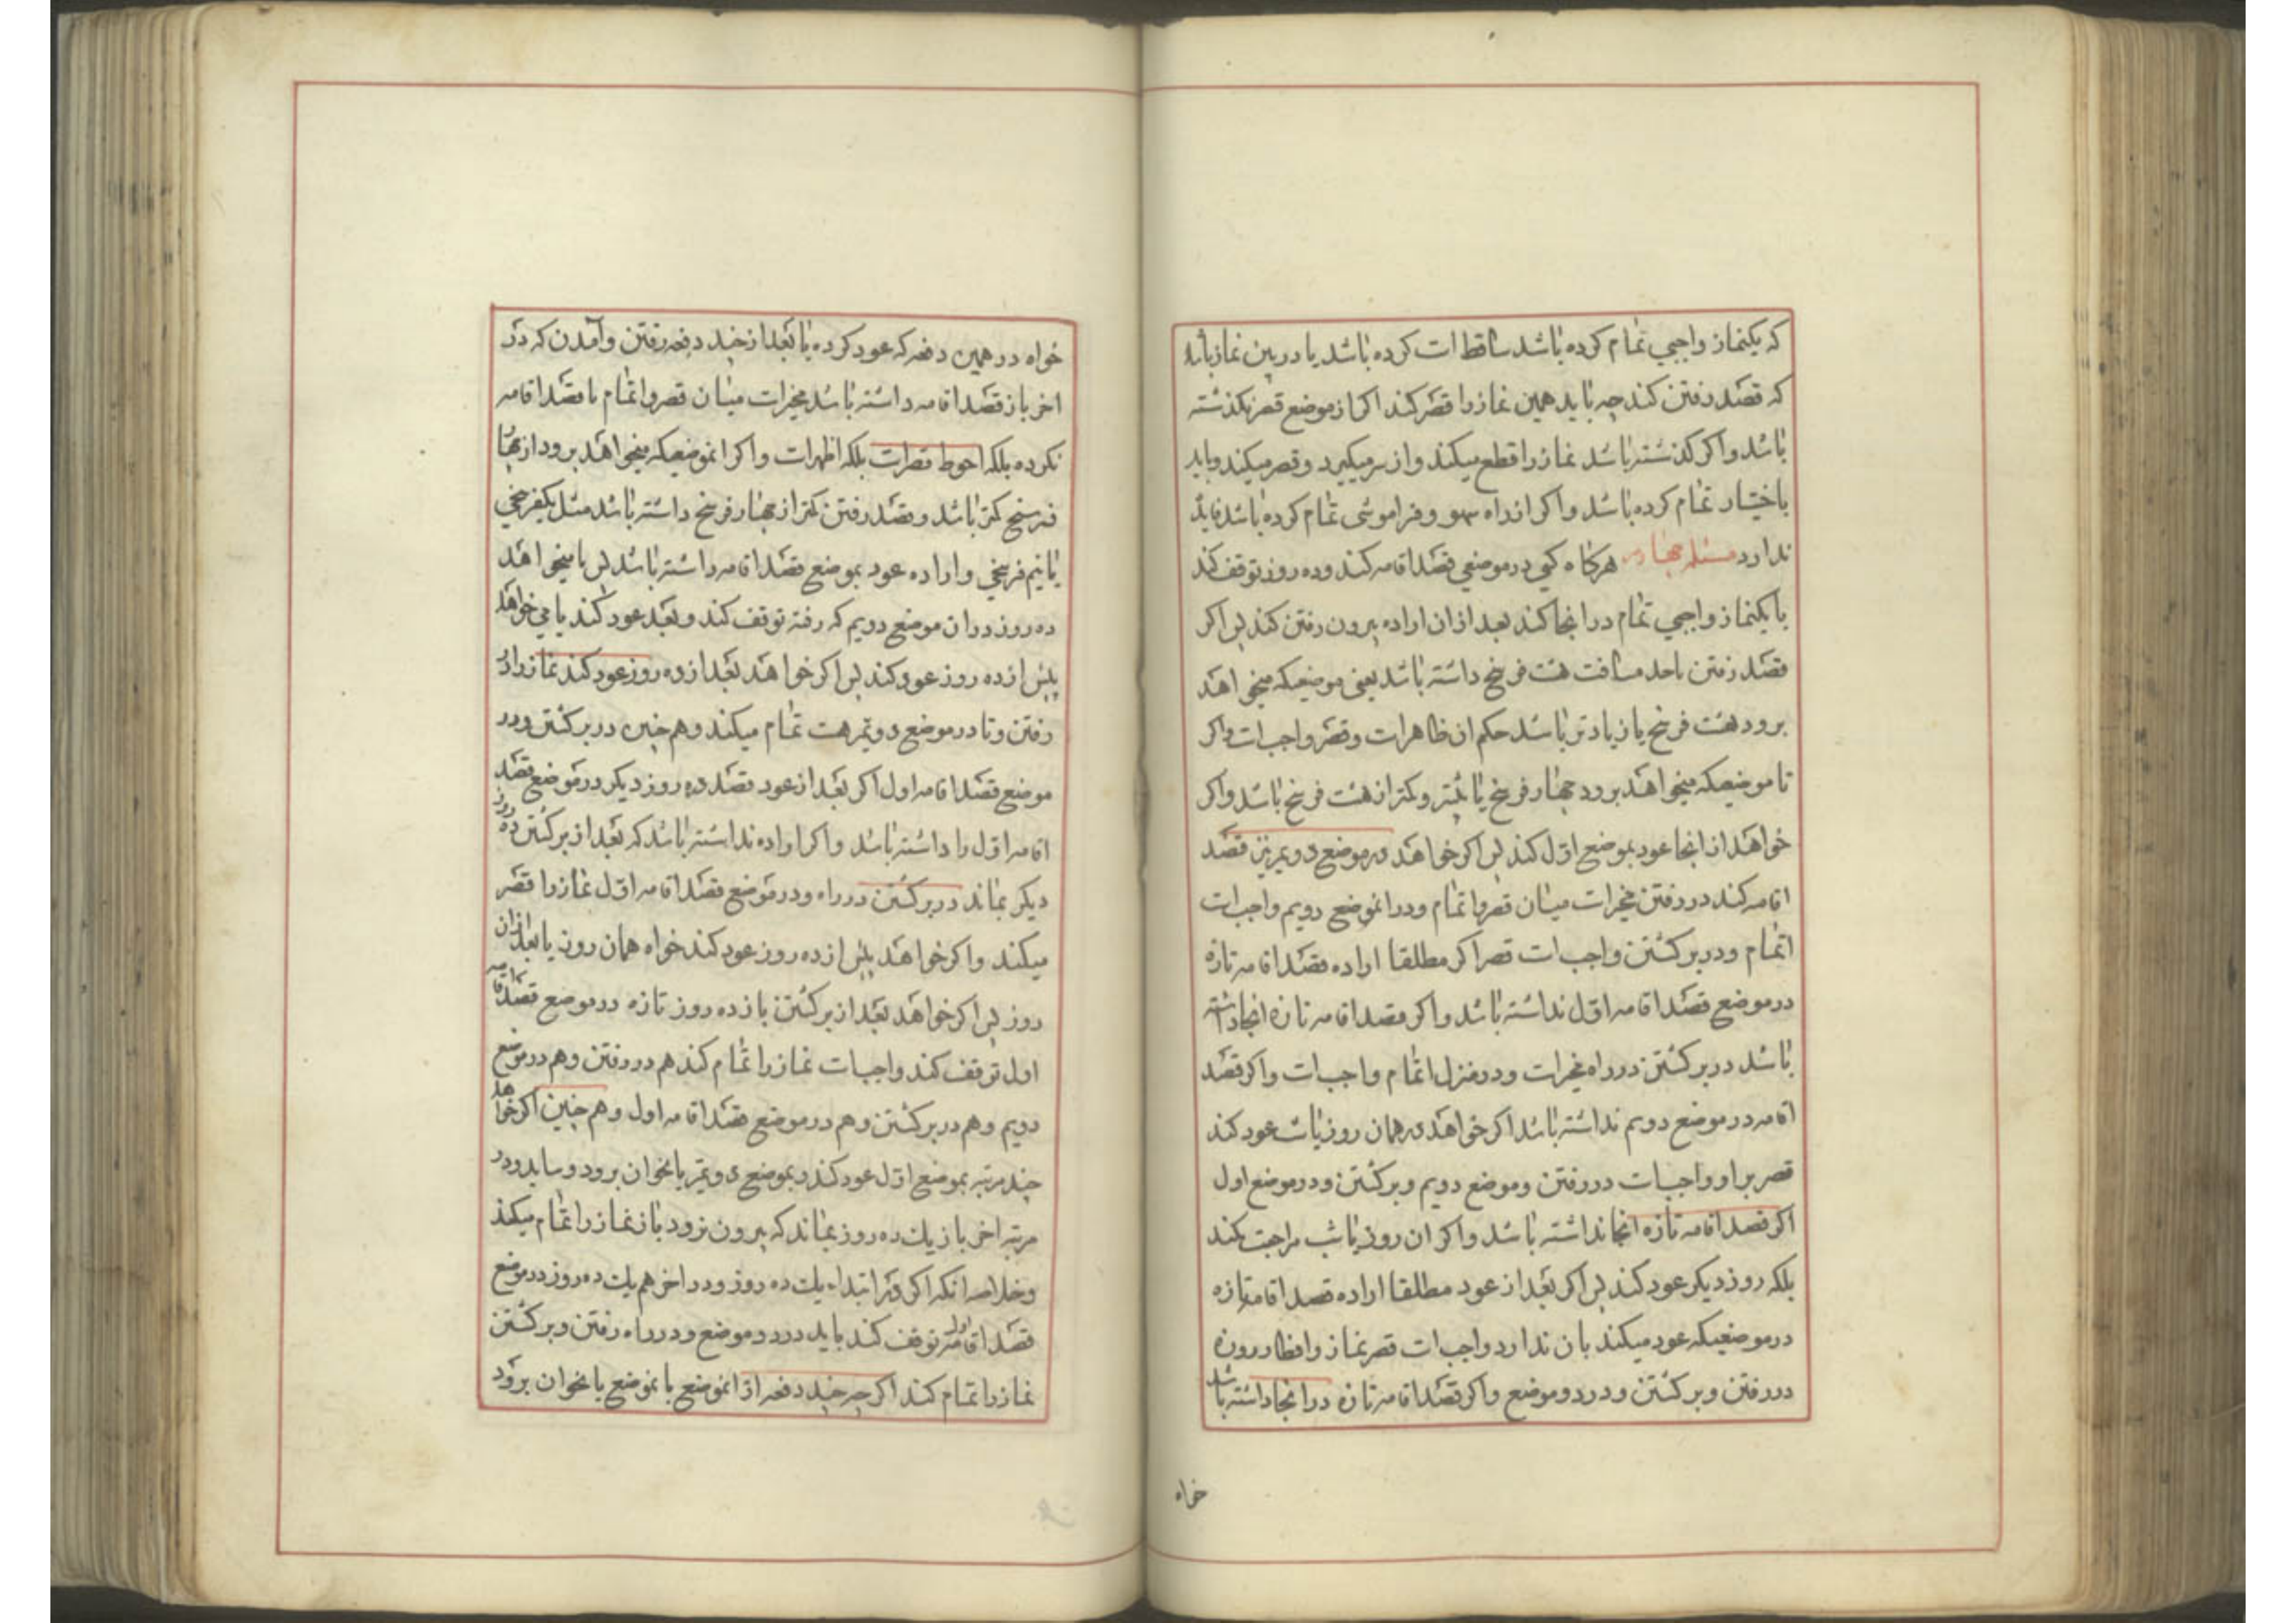 که یکنماز واجبی تمام کرده باشد ساقط است کرده باشد یا در بین نماز باشد
که قصد رفتن کند چه باید همین نماز را قصر کند اکر از موضع قصر نکذشته
باشد و اکر کذشته باشد نماز را قطع میکند و از سر میکیرد و قصر میکند و باید
باختیار تمام کرده باشد و اکر از راه سهو و فراموشی تمام کرده باشد فایده
ندارد مسئله چهارم هرکاه کسی در موضعی قصد اقامه کند و ده روز توقف کند
یا یکنماز واجبی تمام در انجا کند بعد از ان اراده بیرون رفتن کند پس اکر
قصد رفتن تا حد مسافت هشت فرسخ داشته باشد یعنی موضعیکه میخواهد
برود هشت فرسخ یا زیادتر باشد حکم ان ظاهر است و قصر واجب است و اکر
تا موضعیکه میخواهد برود چهار فرسخ یا بیشتر و کمتر از هشت فرسخ باشد و اکر
خواهد از انجا عود بموضع اول کند پس اکر خواهد در موضع دویم نیز قصد
اقامه کند در رفتن مخیر است میان قصر و اتمام و در انموضع دویم واجب است
اتمام و در برکشتن واجب است قصر اکر مطلقا اراده قصد اقامه تازه
در موضع قصد اقامه اول نداشته باشد و اکر قصد اقامه تازه انجا داشته
باشد در برکشتن در راه مخیر است و در منزل اتمام واجب است و اکر قصد
اقامه در موضع دویم نداشته باشد اکر خواهد در همان روز یا شب عود کند
قصر بر او واجب است در رفتن و موضع دویم و برکشتن و در موضع اول
اکر قصد اقامه تازه انجا نداشته باشد و اکر ان روز یا شب مراجعت نکند
بلکه روز دیکر عود کند پس اکر بعد از عود مطلقا اراده قصد اقامه تازه
در موضعیکه عود میکند بان ندارد واجب است قصر نماز و افطار روزه
در رفتن و برکشتن و در دو موضع و اکر قصد اقامه تازه در انجا داشته باشد
خواه
خواه در همین دفعه که عود کرده یا بعد از چند دفعه رفتن و آمدن که در
اخر باز قصد اقامه داشته باشد مخیر است میان قصر و اتمام تا قصد اقامه
نکرده بلکه احوط قصر است بلکه اظهر است و اکر انموضعیکه میخواهد برود از چهار
فرسخ کمتر باشد و قصد رفتن کمتر از چهار فرسخ داشته باشد مثل یکفرسخی
یا نیم فرسخی و اراده عود بموضع قصد اقامه داشته باشد پس یا میخواهد
ده روز در ان موضع دویم که رفته توقف کند و بعد عود کند یا می خواهد
پیش از ده روز عود کند پس اکر خواهد بعد از ده روز عود کند نماز را در
رفتن و تا در موضع دویم هست تمام میکند و هم چنین در برکشتن و در
موضع قصد اقامه اول اکر بعد از عود قصد ده روز دیکر در موضع قصد
اقامه اول را داشته باشد و اکر اراده نداشته باشد که بعد از برکشتن ده روز
دیکر بماند در برکشتن در راه و در موضع قصد اقامه اول نماز را قصر
میکند و اکر خواهد پیش از ده روز عود کند خواه همان روز یا بعد از ان
روز پس اکر خواهد بعد از برکشتن باز ده روز تازه در موضع قصد اقامه
اول توقف کند واجب است نماز را تمام کند هم در رفتن و هم در موضع
دویم و هم در برکشتن و هم در موضع قصد اقامه اول و هم چنین اکر خواهد
چند مرتبه بموضع اول عود کند و بموضع دویم یا نحو ان برود و بیاید و در
مرتبه اخر باز یک ده روز بماند که بیرون نرود باز نماز را تمام میکند
و خلاصه انکه اکر در ابتداء یک ده روز و در اخر هم یک ده روز در موضع
قصد اقامه اول توقف کند باید در دو موضع و در راه رفتن و برکشتن
نماز را تمام کند اکر چه چند دفعه از انموضع بانموضع یا نحو ان برود